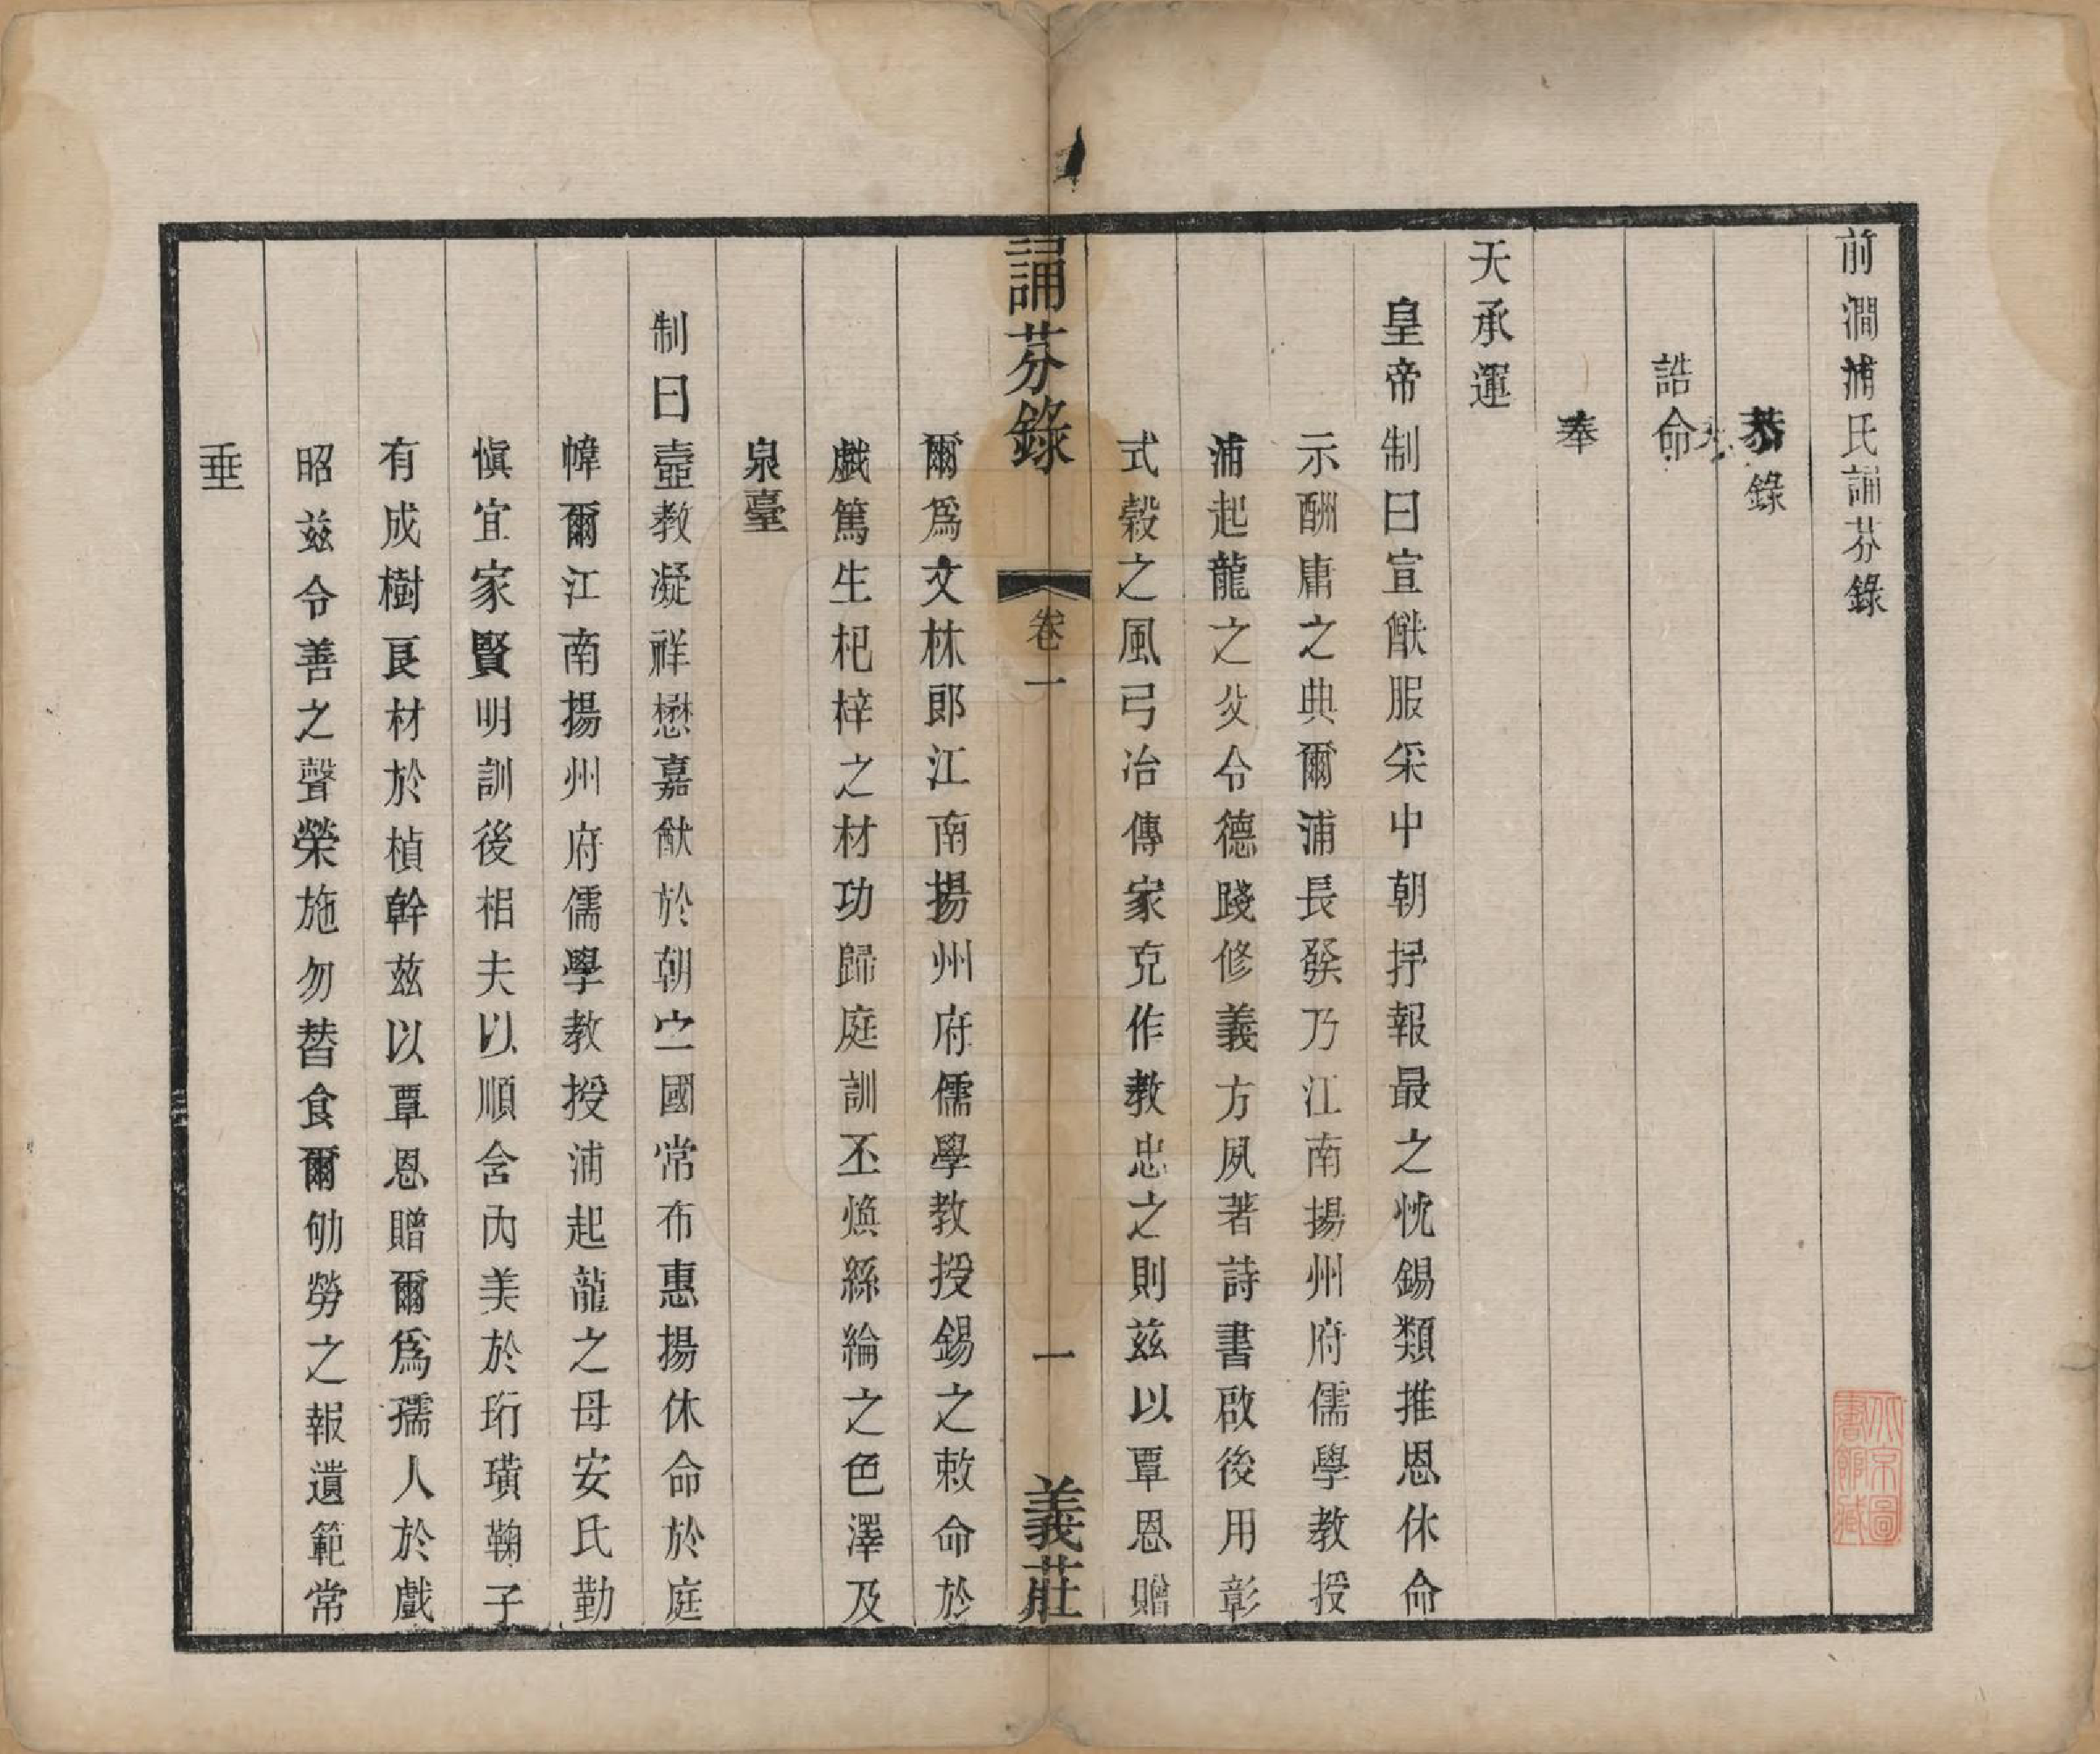 前澗浦氏誦芬錄
恭錄
誥命
奉
天承運
皇帝制曰宣猷服采中朝抒報最之忱錫類推恩休命
示酬庸之典爾浦長發乃江南揚州府儒學教授
浦起龍之父令德踐修義方夙著詩書啟後用彰
式穀之風弓冶傳家克作教忠之則茲以覃恩贈
爾爲文林郎江南揚州府儒學教授錫之敕命於
戲篤生杞梓之材功歸庭訓丕煥絲綸之色澤及
泉臺
制曰壼教凝祥懋嘉猷於朝宁國常布惠揚休命於庭
幃爾江南揚州府儒學教授浦起龍之母安氏勤
愼宜家賢明訓後相夫以順含內美於珩璜鞠子
有成樹良材於楨幹茲以覃恩贈爾爲孺人於戲
昭茲令善之聲榮施勿替食爾劬勞之報遺範常
垂
誦芬錄
卷一
一
義莊
北京圖
書館藏